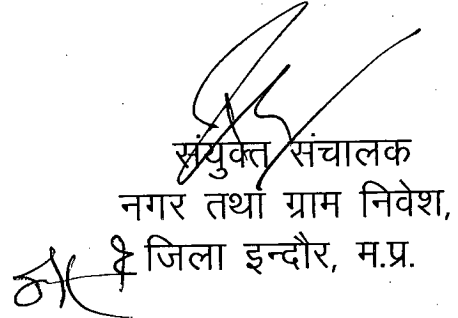 संयुक्त संचालक
नगर तथा ग्राम निवेश,
जिला इन्दौर, म.प्र.